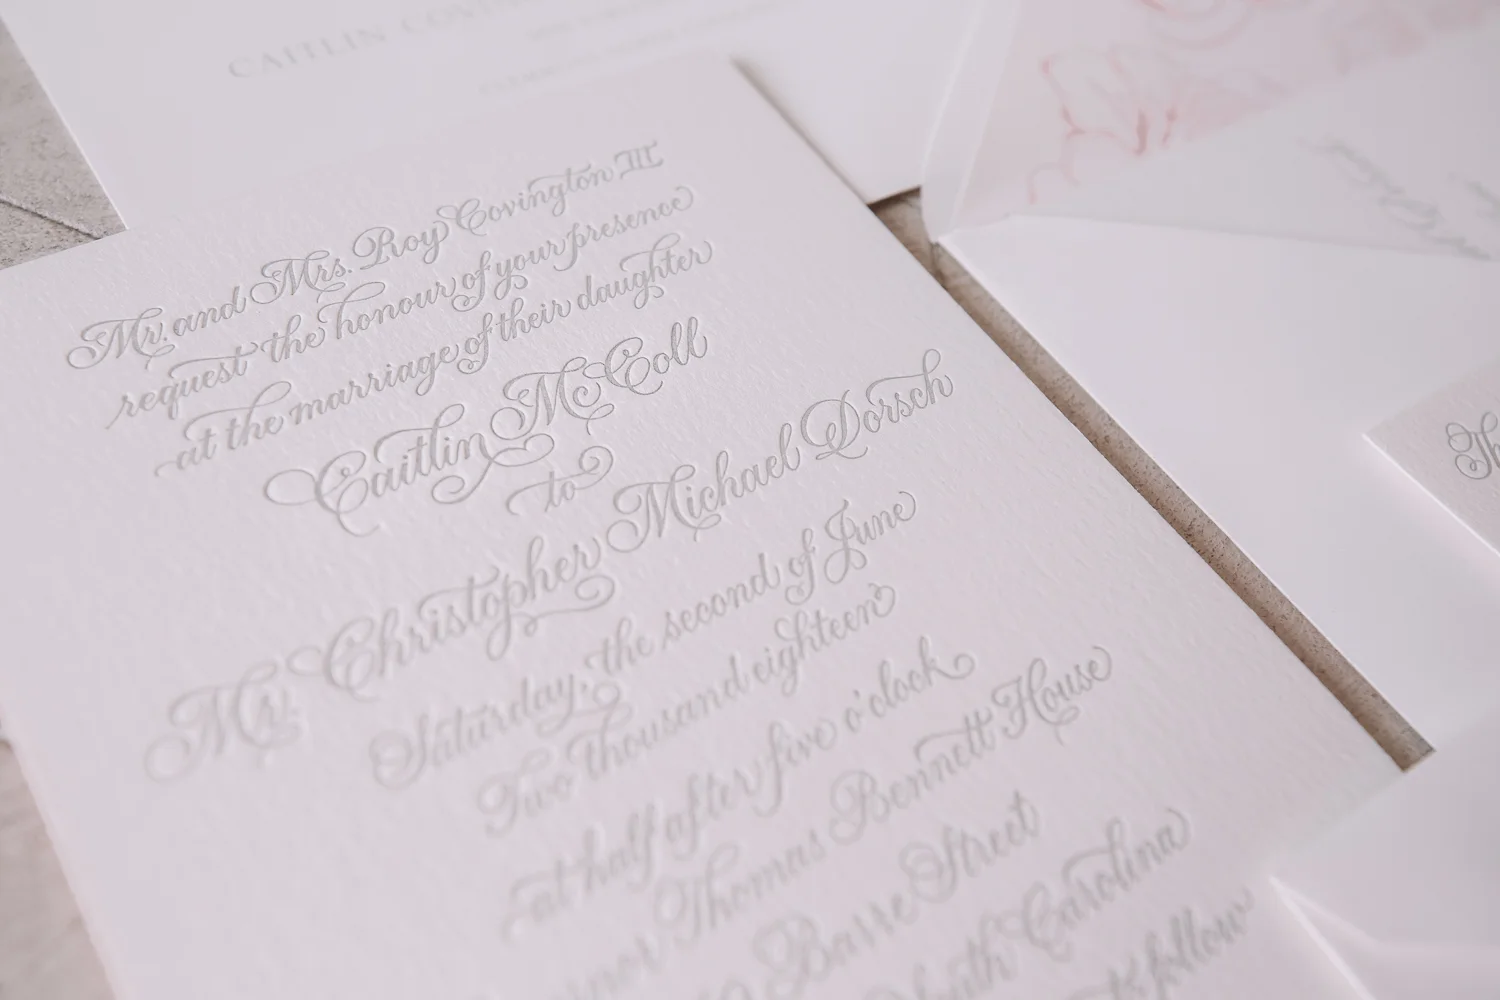 CAITLIN
Mr. and Mrs. Roy Covington III
request the honour of your presence
at the marriage of their daughter
Caitlin McColl
to
Mr. Christopher Michael Dorsch
Saturday, the second of June
Two thousand eighteen
at half after five o'clock
Thomas Bennett House
Barre Street
Carolina
follow